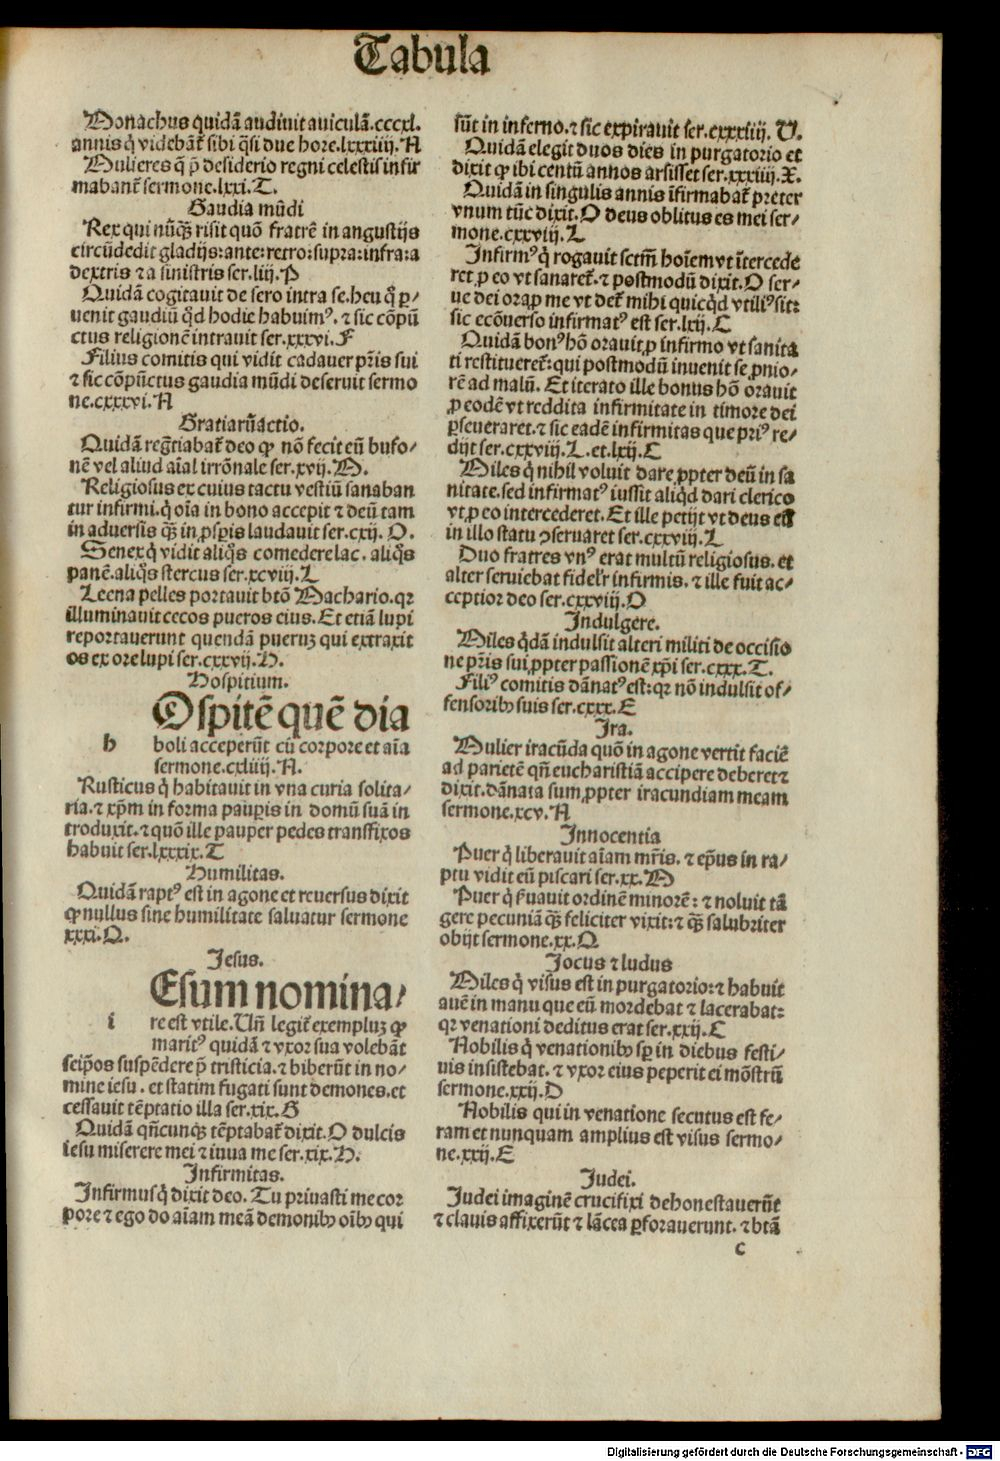 Tabula
Monachus quidã audiuit auiculã.cccxl.
annis q̇ videbãt᷑ sibi q̃si due hore.lxxxiiij.A
Mulieres q̃ p̃ desiderio regni celestis infir
mabant᷑ sermone.lxxi.T.
Gaudia mũdi
Rex qui nũq̃ȝ risit quõ fratrẽ in angustijs
circũdedit gladijs:ante:retro:supra:infra:a
dextris ⁊ a sinistris ser.liij.P
Quidã cogitauit de sero intra se.heu q̃ ꝑ/
uenit gaudiũ q̃d hodie habuim⁹. ⁊ sic cõpũ
ctus religionẽ intrauit ser.xxxvi.F
Filius comitis qui vidit cadauer p̃ris sui
⁊ sic cõpũctus gaudia mũdi deseruit sermo
ne.cxxxvi.A
Gratiarũactio.
Quidã reg̃tiabat᷑ deo ꝙ nõ fecit eũ bufo-
nẽ vel aliud aĩal irrõnale ser.xvij.M.
Religiosus ex cuius tactu vestiũ sanaban
tur infirmi.q̇ oĩa in bono accepit ⁊ deũ tam
in aduersis q̃ȝ in ꝓsꝑis laudauit ser.cxij. O.
Senex q̇ vidit aliq̃s comedere lac. aliq̃s
panẽ.aliq̃s stercus ser.xcviij.L
Leena pelles portauit btõ Machario.qr
illuminauit cecos pueros eius. Et etiã lupi
reportauerunt quendã pueruȝ qui extraxit
os ex ore lupi ser.cxxvij.H.
Hospitium.
Ospitẽ quẽ dia
h boli acceperũt cũ corpore et aĩa
sermone.cxliiij.A.
Rusticus q̇ habitauit in vna curia solita/
ria.⁊ xp̃m in forma pauꝑis in domũ suã in
troduxit.⁊ quõ ille pauper pedes transfixos
habuit ser.lxxxix.T
Humilitas.
Quidã rapt⁹ est in agone et reuersus dixit
ꝙ nullus sine humilitate saluatur sermone
xxxi.Q.
Jesus.
Esum nomina/
i re est vtile.Vñ legit᷑ exempluȝ ꝙ
marit⁹ quidã ⁊ vxor sua volebãt
seip̃os suspẽdere p̃ tristicia.⁊ biberũt in no/
mine iesu . et statim fugati sunt demones.et
cessauit tẽptatio illa ser.xix.G
Quidã qñcunq̃ȝ tẽptabat᷑ dixit.O dulcis
iesu miserere mei ⁊ iuua me ser.xix.H.
Infirmitas.
Infirmus q̇ dixit deo. Tu priuasti me cor
pore ⁊ ego do aĩam meã demonibꝰ oĩbꝰ qui
sũt in inferno.⁊ sic expirauit ser.cxxxiiij. V.
Quidã elegit duos dies in purgatorio et
dixit ꝙ ibi centũ annos arsisset ser.xxxiiij.X.
Quidã in singulis annis ĩfirmabat᷑ preter
vnum tũc dixit.O deus oblitus es mei ser-
mone.cxxviij.L
Infirm⁹ q̇ rogauit sctm̃ hoĩem vt ĩtercede
ret ꝓ eo vt sanaret᷑. ⁊ postmodũ dixit.O ser-
ue dei ora ꝓ me vt det᷑ mihi quicq̃d vtili⁹ sit:
sic ecõuerso infirmat⁹ est ser.lxij.C
Quidã bon⁹ hõ orauit ꝓ infirmo vt sanita
ti restitueret᷑:qui postmodũ inuenit se ꝓnio/
rẽ ad malũ. Et iterato ille bonus hõ orauit
ꝓ eodẽ vt reddita infirmitate in timore dei
ꝑseueraret.⁊ sic eadẽ infirmitas que pri⁹ re/
dijt ser.cxxviij.L.et.lxij.C
Miles q̇ nihil voluit dare ꝓpter deũ in sa
nitate.sed infirmat⁹ iussit aliq̃d dari clerico
vt ꝓ eo intercederet. Et ille petijt vt deus eũ
in illo statu ꝯseruaret ser.cxxviij.L
Duo fratres vn⁹ erat multũ religiosus. et
alter seruiebat fidelr̃ infirmis. ⁊ ille fuit ac/
ceptior deo ser.cxxviij.O
Indulgere.
Miles q̃dã indulsit alteri militi de occisio
ne p̃ris sui ꝓpter passionẽ xp̃i ser.cxxx.T.
Fili⁹ comitis dãnat⁹ est:qr nõ indulsit of/
fensoribꝰ suis ser.cxxx.E
Ira.
Mulier iracũda quõ in agone vertit faciẽ
ad parietẽ qñ eucharistiã accipere deberet ⁊
dixit.dãnata sum ꝓpter iracundiam meam
sermone.xcv.A
Innocentia
Puer q̇ liberauit aĩam mr̃is. ⁊ ep̃us in ra/
ptu vidit eũ piscari ser.xx.M
Puer q̇ ẜuauit ordinẽ minorẽ: ⁊ noluit tã
gere pecuniã q̃ȝ feliciter vixit:⁊ q̃ȝ salubriter
obijt sermone.xx.Q
Jocus ⁊ ludus
Miles q̇ visus est in purgatorio:⁊ habuit
auẽ in manu que eũ mordebat ⁊ lacerabat:
qr venationi deditus erat ser.xxij.C
Nobilis q̇ venationibꝰ sꝑ in diebus festi/
uis insistebat. ⁊ vxor eius peperit ei mõstrũ
sermone.xxij.D
Nobilis qui in venatione secutus est fe/
ram et nunquam amplius est visus sermo/
ne.xxij.E
Judei.
Judei imaginẽ crucifixi dehonestauerũt
⁊ clauis affixerũt ⁊ lãcea ꝑforauerunt. ⁊ btã
c
Digitalisierung gefördert durch die Deutsche Forschungsgemeinschaft - DFG